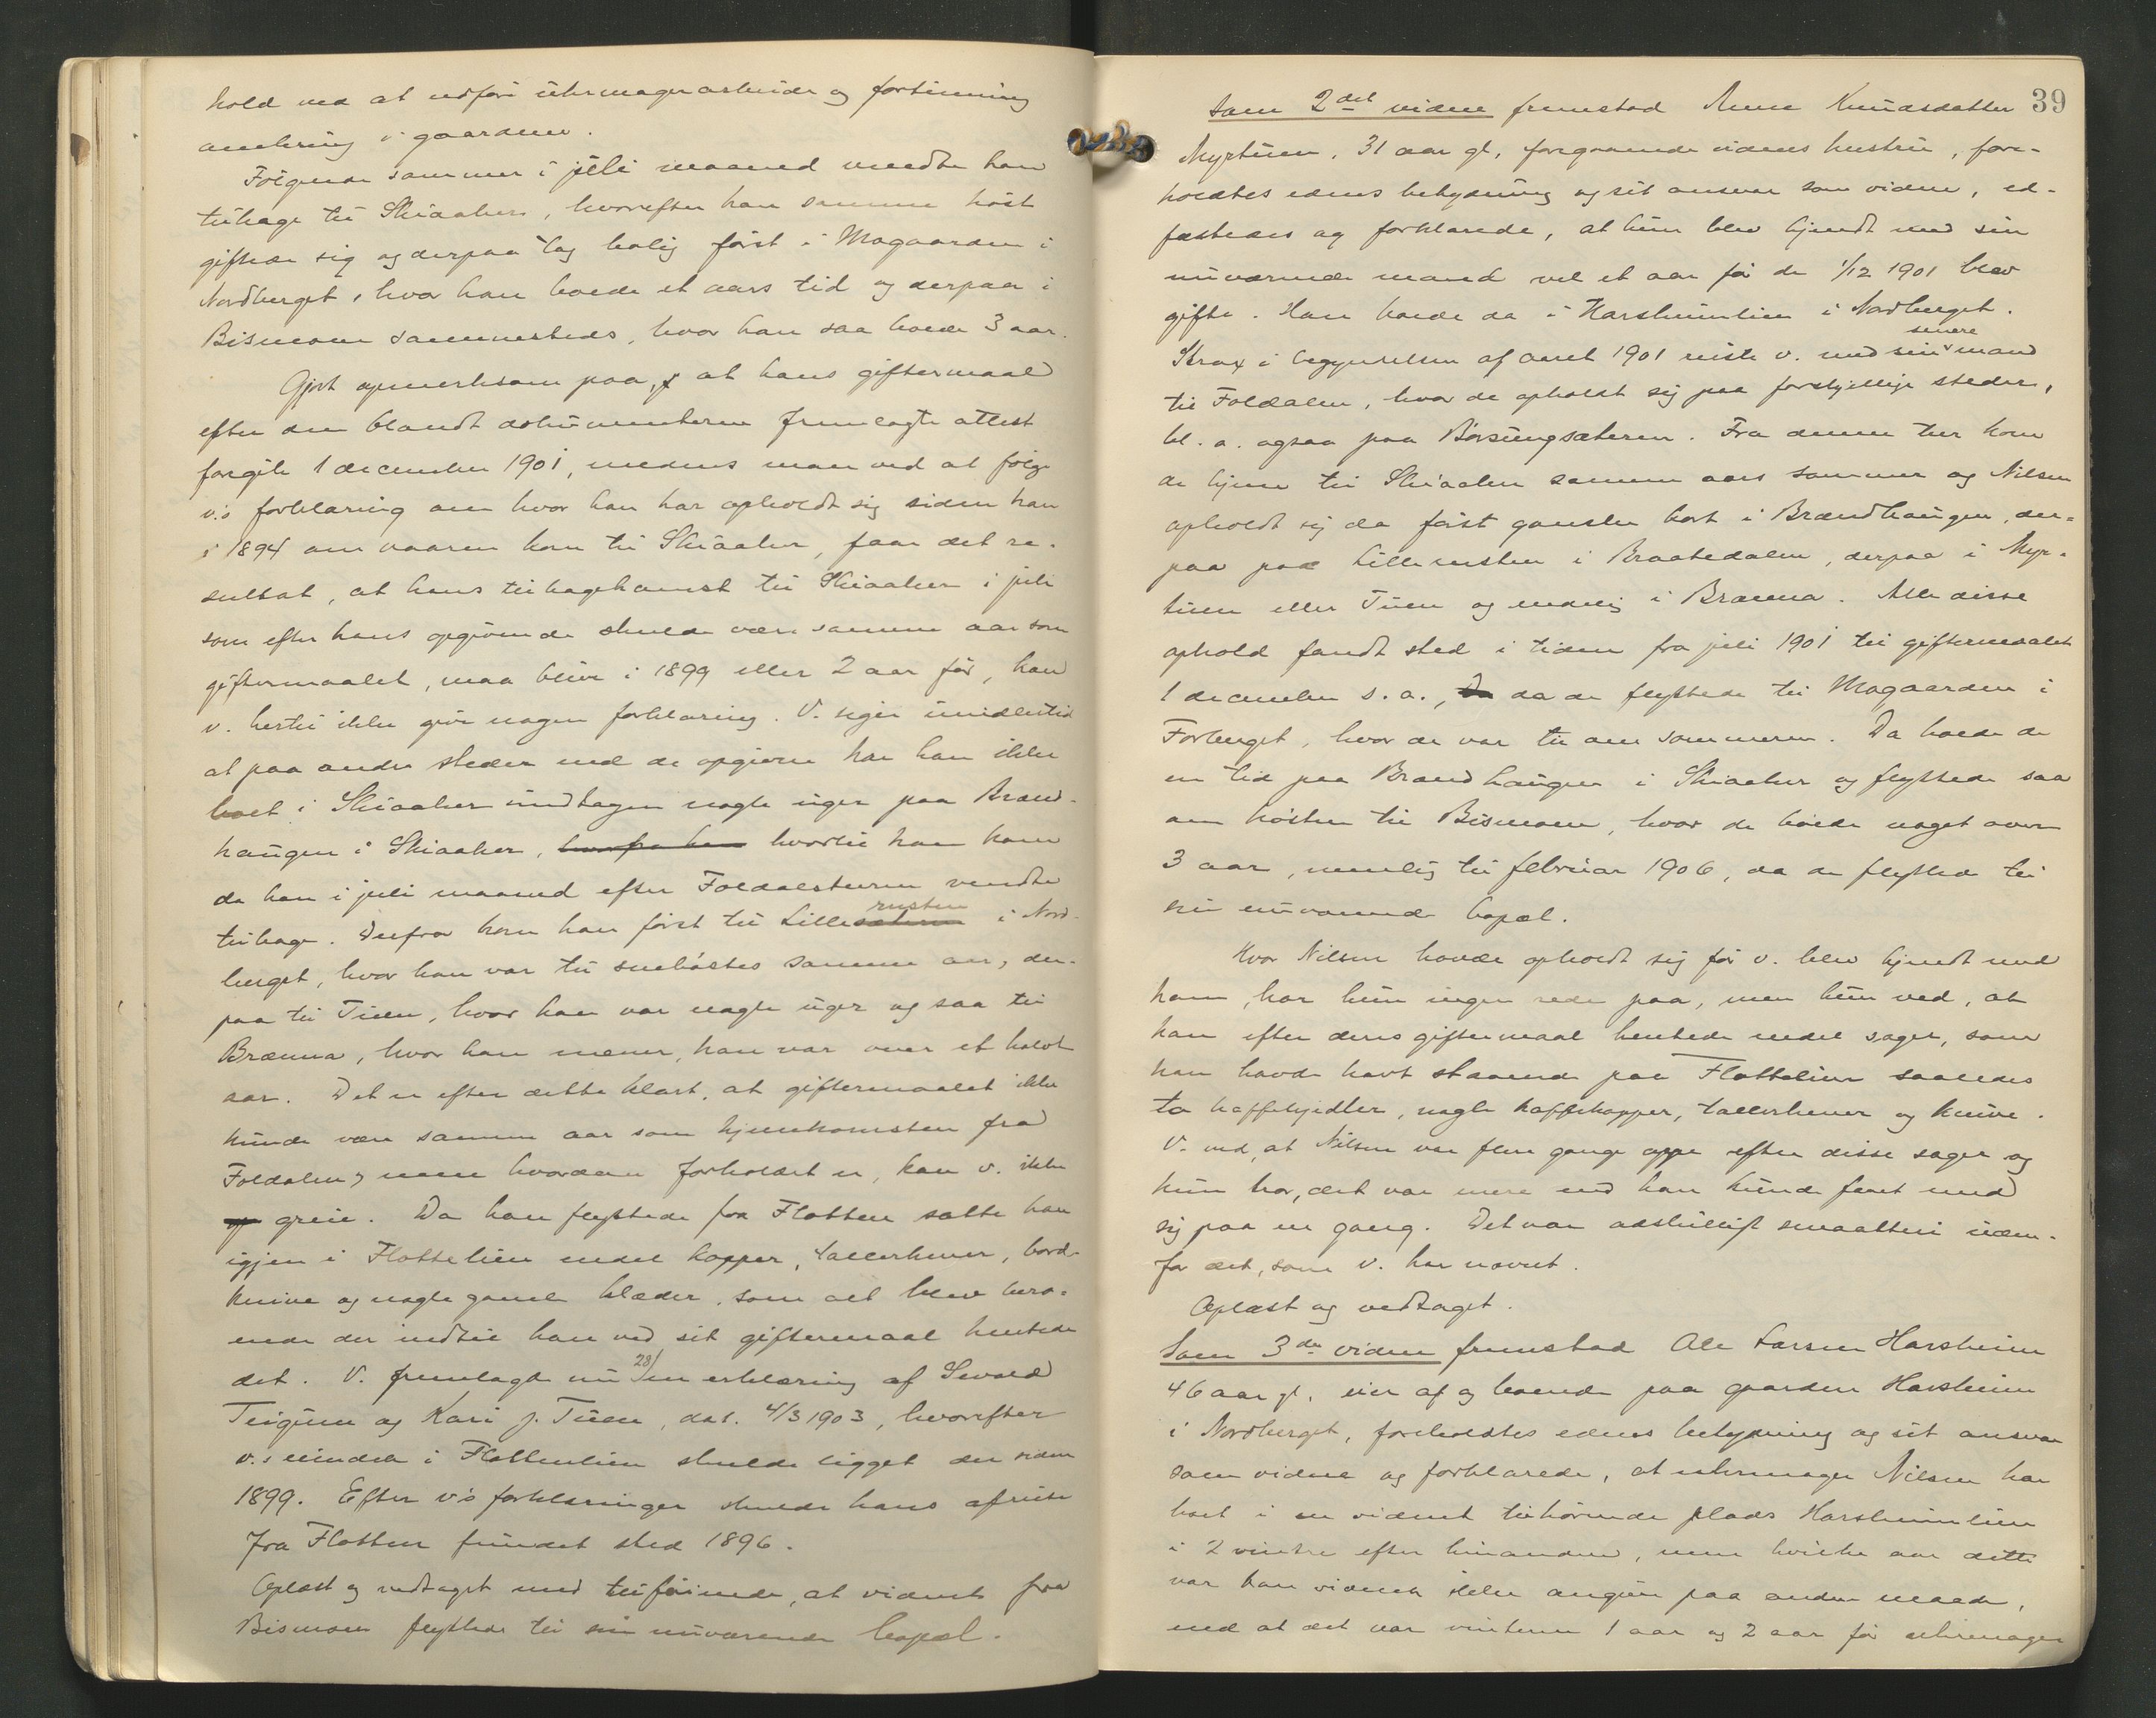 hold ved at udføre uhrmagerarbeide og fortinning
omkring i gaardene.
Følgende sommer i juli maaned vendte han
tilbage til Skiaaker, hvorefter han samme høst
giftede sig og derpaa tog bolig først i Mogaarden i
Nordberget, hvor han boede et aars tid og derpaa i
Bismoen sammesteds, hvor han saa boede 3 aar.
Gjort opmerksom paa, at hans giftermaal
efter den blandt dokumenterne fremlagte attest
foregik 1 december 1901, medens man ved at følge
v.s forklaring om hvor han har opholdt sig siden han
i 1894 om vaaren kom til Skiaaker, faar det re-
sultat, at hans tilbagekomst til Skiaaker i juli
som efter hans opgivende skulde være samme aar som
giftermaalet, maa blive i 1899 eller 2 aar før, kan
v. hertil ikke give nogen forklaring. V. siger imidlertid
at paa andre steder end de opgivne har han ikke
boet i Skiaaker undtagen nogle uger paa Brænd-
haugen i Skiaaker, hvorfra han hvortil han kom
da han i juli maaned efter Foldalsturen vendte
tilbage. Derfra kom han først til Lillesæteren rusten i Nord-
berget, hvor han var til snehøstes samme aar, der-
paa til Tuen, hvor han var nogle uger og saa til
Brænna, hvor han mener, han var over et halvt
aar. Det er efter dette klart, at giftermaalet ikke
kunde være samme aar som hjemkomsten fra
Foldalen, men hvordan forholdet er, kan v. ikke
op greie. Da han flyttede fra Flotten satte han
igjen i Flottelien endel kopper, tallerkener, bord-
knive og nogle gamle klæder, som alt blev bero-
ende der indtil han ved sit giftermaal hentede
det. V. fremlagde nu 28/ en erklæring af Sevald
Teigum og Kari J. Tuen, dat. 4/3 1903, hvorefter
v.s eiendele i Flottenlien skulde ligget der siden
1899. Efter v's forklaringer skulde hans afreise
fra Flotten fundet sted 1896.
Oplæst og vedtaget med tilføiende, at vidnet fra
Bismoen flyttede til sin nuværende bopæl.
39
Som 2det vidne fremstod Anne Knudsdatter
Myrtuen, 31 aar gl., foregaaende vidnes hustru, fore-
holdtes edens betydning og sit ansvar som vidne, ed-
fæstedes og forklarede, at hun blev kjendt med sin
nuværende mand vel et aar før de 1/12 1901 blev
gifte. Han boede da i Harsheimlien i Nordberget.
Strax i begyndelsen af aaret 1901 reiste v. med sin senere mand
til Foldalen, hvor de opholdt sig paa forskjellige steder,
bl. a. ogsaa paa Børsungsæteren. Fra denne tur kom
de hjem til Skiaaker samme aars sommer og Nilsen
opholdt sig da først ganske kort i Brændhaugen, der-
paa paa Lillerusten i Braatedalen, derpaa i Myr-
tuen eller Tuen og endelig i Brænna. Alle disse
ophold fandt sted i tiden fra juli 1901 til giftermaalet
1 december s. a., Da da de flyttede til Mogaarden i
Forberget, hvor de var til om sommeren. Da boede de
en tid paa Brændhaugen i Skiaaker og flyttede saa
om høsten til Bismoen, hvor de boede noget over
3 aar, nemlig til februar 1906, da de flyttede til
sin nuværende bopæl.
Hvor Nilsen havde opholdt sig før v. blev kjendt med
ham, har hun ingen rede paa, men hun ved, at
han efter deres giftermaal hentede endel sager, som
han havde havt staaende paa Flottelien saaledes
to kaffekjedler, nogle kaffekopper, tallerkener og knive.
V. ved, at Nilsen var flere gange oppe efter disse sager og
hun tror, det var mere end han kunde faaet med
sig paa en gang. Det var adskilligt smaatteri uden-
for det, som v. har nævnt.
Oplæst og vedtaget.
Som 3die vidne fremstod Ole Larsen Harsheim
46 aar gl. eier af og boende paa gaarden Harsheim
i Nordberget, foreholdtes edens betydning og sit ansvar
som vidne og forklarede, at uhrmager Nilsen har
boet i en vidnet tilhørende plads Harsheimlien
i 2 vintre efter hinanden, men hvilke aar dette
var kan vidnet ikke angive paa anden maade,
end at det var vinteren 1 aar og 2 aar før uhrmager